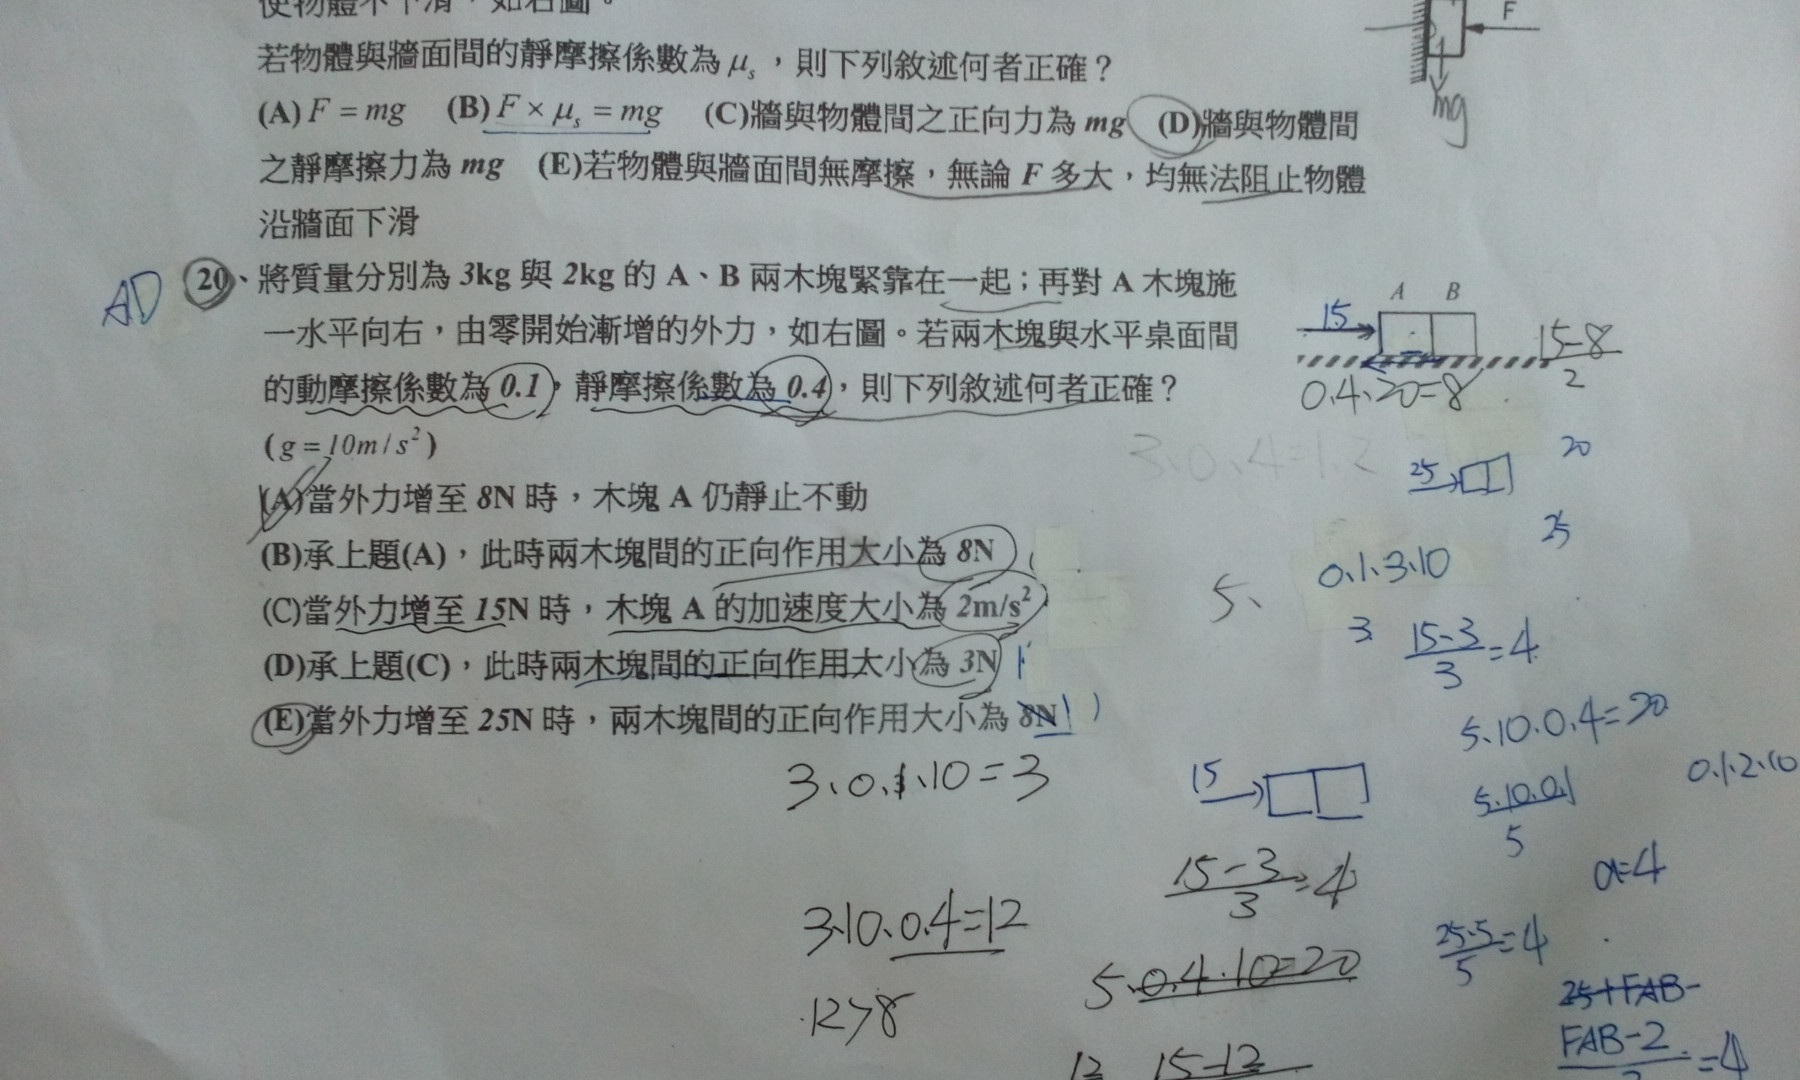 使物體不下滑，如右圖。
F
若物體與牆面間的靜摩擦係數為 μs ，則下列敘述何者正確？
mg
(A) F = mg (B) F × μs = mg (C)牆與物體間之正向力為 mg (D)牆與物體間
之靜摩擦力為 mg (E)若物體與牆面間無摩擦，無論 F 多大，均無法阻止物體
沿牆面下滑
AD
20、將質量分別為 3kg 與 2kg 的 A、B 兩木塊緊靠在一起；再對 A 木塊施
一水平向右，由零開始漸增的外力，如右圖。若兩木塊與水平桌面間
的動摩擦係數為 0.1，靜摩擦係數為 0.4，則下列敘述何者正確？
(g = 10m / s²)
A B
15
15-8
2
0.4.20=8
3.0.4=1.2
25
20
25
(A)當外力增至 8N 時，木塊 A 仍靜止不動
(B)承上題(A)，此時兩木塊間的正向作用大小為 8N
(C)當外力增至 15N 時，木塊 A 的加速度大小為 2m/s²
(D)承上題(C)，此時兩木塊間的正向作用大小為 3N
(E)當外力增至 25N 時，兩木塊間的正向作用大小為 8N
0.1.3.10
5.
3
15-3
3
=4
5.10.0.4=20
0.1.2.10
5.10.0.1
5
3.0.1.10=3
15
15-3
3
=4
a=4
3.10.0.4=12
5.0.4.10=20
25-5
5
=4
12>8
25+FAB-
FAB-2
=4
12
15-12